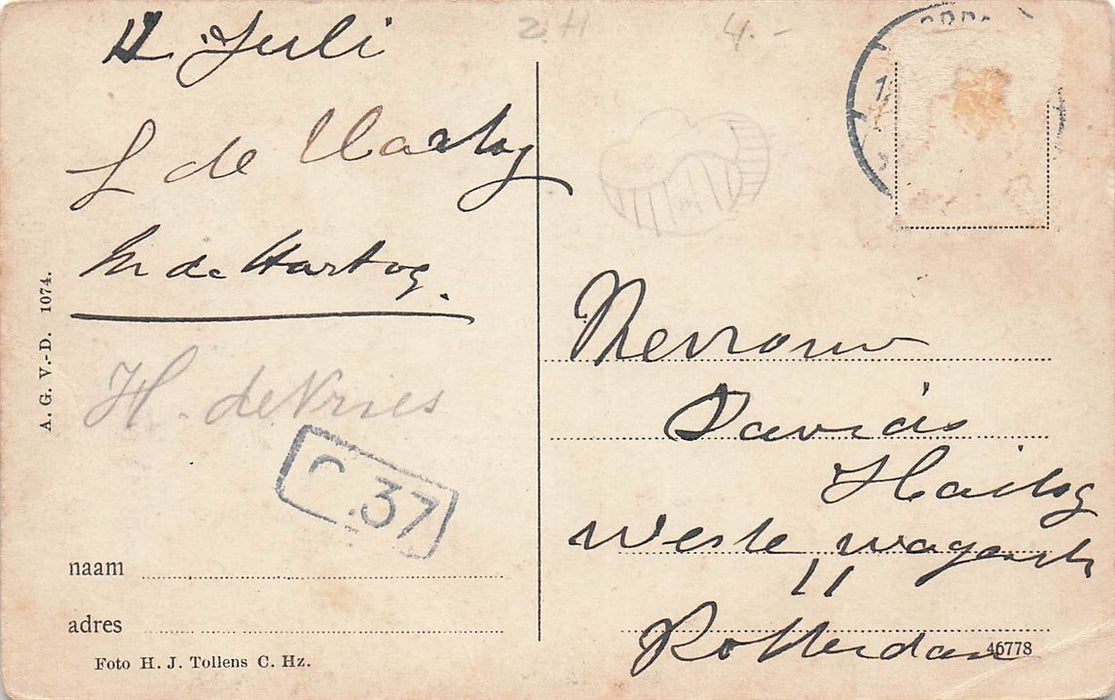 11 Juli
2H
4.-
L de Hartog
M de Hartog.
H. de Vries
C.37
A. G. V.-D. 1074.
naam
adres
Foto H. J. Tollens C. Hz.
Mevrouw
Davids
Hartog
Weste wagenstr
11
Rotterdam
46778